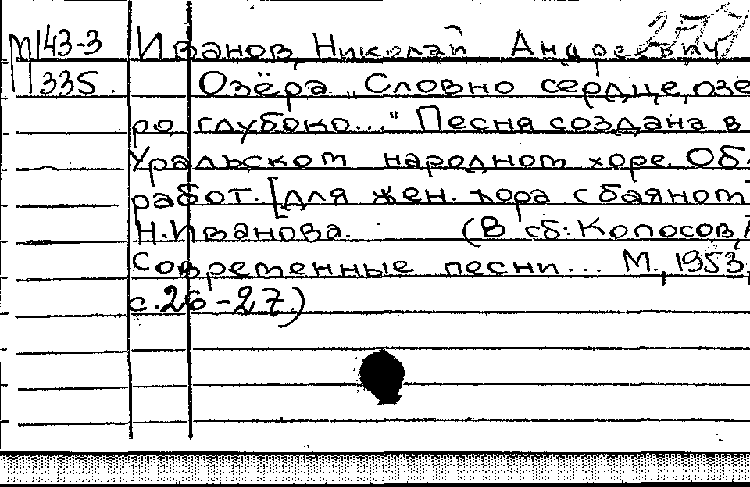 М143-3 Иванов, Николай Андреевич
335. Озёра „Словно сердце, озе
ро глубоко..." Песня создана в
Уральском народном хоре. Об.
работ. [для жен. хора с баяном]
Н. Иванова. (В сб: Колосов,
Современные песни... М., 1953,
с. 26-27.)